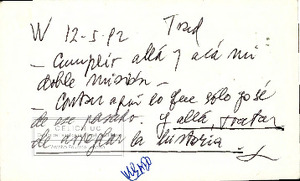 W 12-5-92 Trad
- Cumplir allá y acá mi
doble misión -
- Contar aquí lo que solo yo sé
de ese pasado. y allá, tratar
de arreglar la historia -
CELICH UC